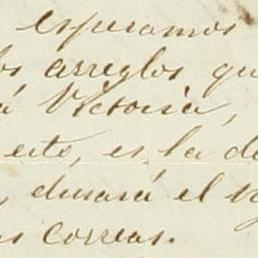 esperamos
los arreglos qu
á Victoria,
este, es la de
, durará el
as correas.